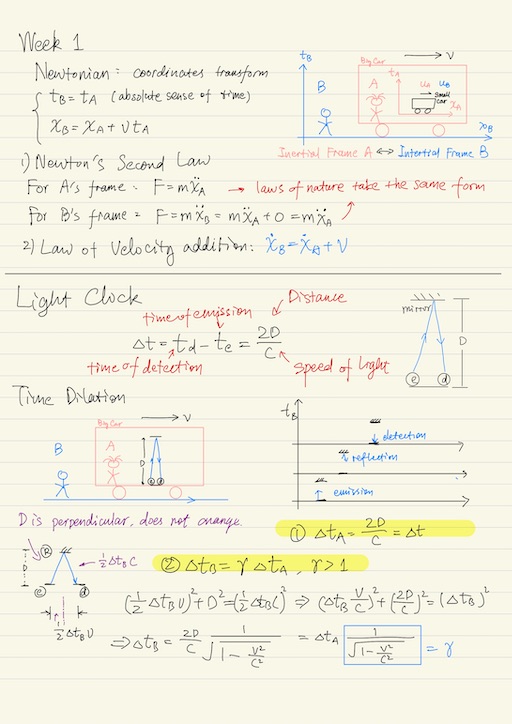 Week 1
Newtonian: coordinates transform
t_B = t_A (absolute sense of time)
x_B = x_A + vt_A
t_B
Big Car
→ v
B
A
t_A
u_A u_B
small car
x_A
x_B
Inertial Frame A ↔ Intertial Frame B
1) Newton's Second Law
For A's frame: F = mẍ_A → laws of nature take the same form
For B's frame: F = mẍ_B = mẍ_A + 0 = mẍ_A
2) Law of Velocity addition: ẋ_B = ẋ_A + v
Light Clock
Distance
time of emission
Δt = t_d - t_e = 2D/C
time of detection
speed of light
mirror
D
e
d
Time Dilation
Big Car
→ v
B
A
D
t_B
detection
reflection
emission
D is perpendicular, does not change.
① Δt_A = 2D/C = Δt
② Δt_B = γ Δt_A, γ > 1
R
D
½Δt_B C
e
d
½Δt_B υ
(½Δt_B υ)² + D² = (½Δt_B C)² ⇒ (Δt_B V/C)² + (2D/C)² = (Δt_B)²
⇒ Δt_B = 2D/C 1/√(1 - V²/C²) = Δt_A 1/√(1 - V²/C²) = γ